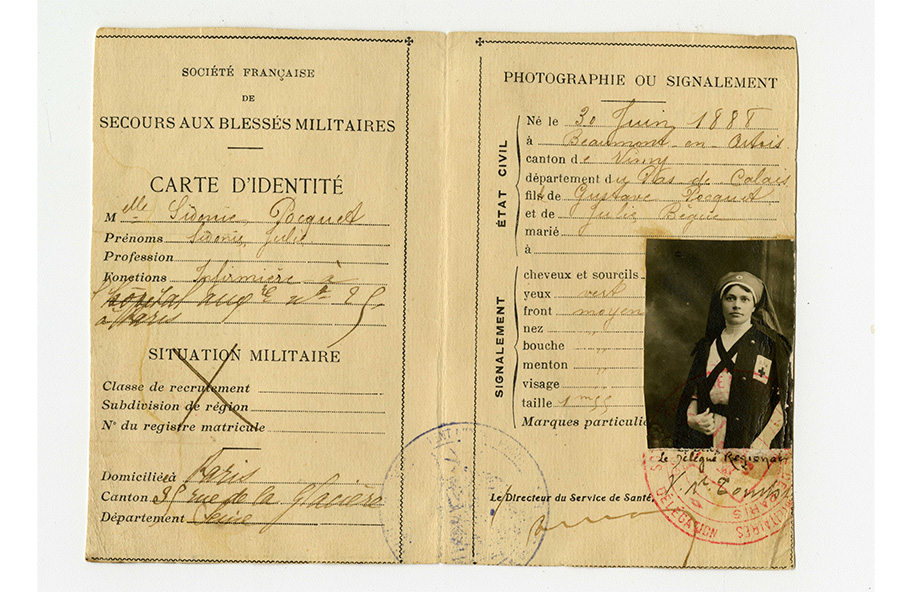 SOCIÉTÉ FRANÇAISE
DE
SECOURS AUX BLESSÉS MILITAIRES
CARTE D'IDENTITÉ
Melle Sidonie Pocquet
Prénoms Sidonie Julie
Profession
Fonctions Infirmière à
l'hôpital aux re n° 25
à Paris
SITUATION MILITAIRE
Classe de recrutement
Subdivision de région
N° du registre matricule
Domicilié à Paris
Canton 35 rue de la Glacière
Département Seine
PHOTOGRAPHIE OU SIGNALEMENT
ÉTAT CIVIL
Né le 30 Juin 1888
à Beaumont en Artois
canton de Vimy
département du Pas de Calais
fille de Gustave Pocquet
et de Julie Bègue
marié
à
SIGNALEMENT
cheveux et sourcils
yeux vert
front moyen
nez "
bouche "
menton "
visage "
taille 1m55
Marques particuliè
Le Délégué Régional
Le Directeur du Service de Santé,
DÉLÉGATION
PARIS